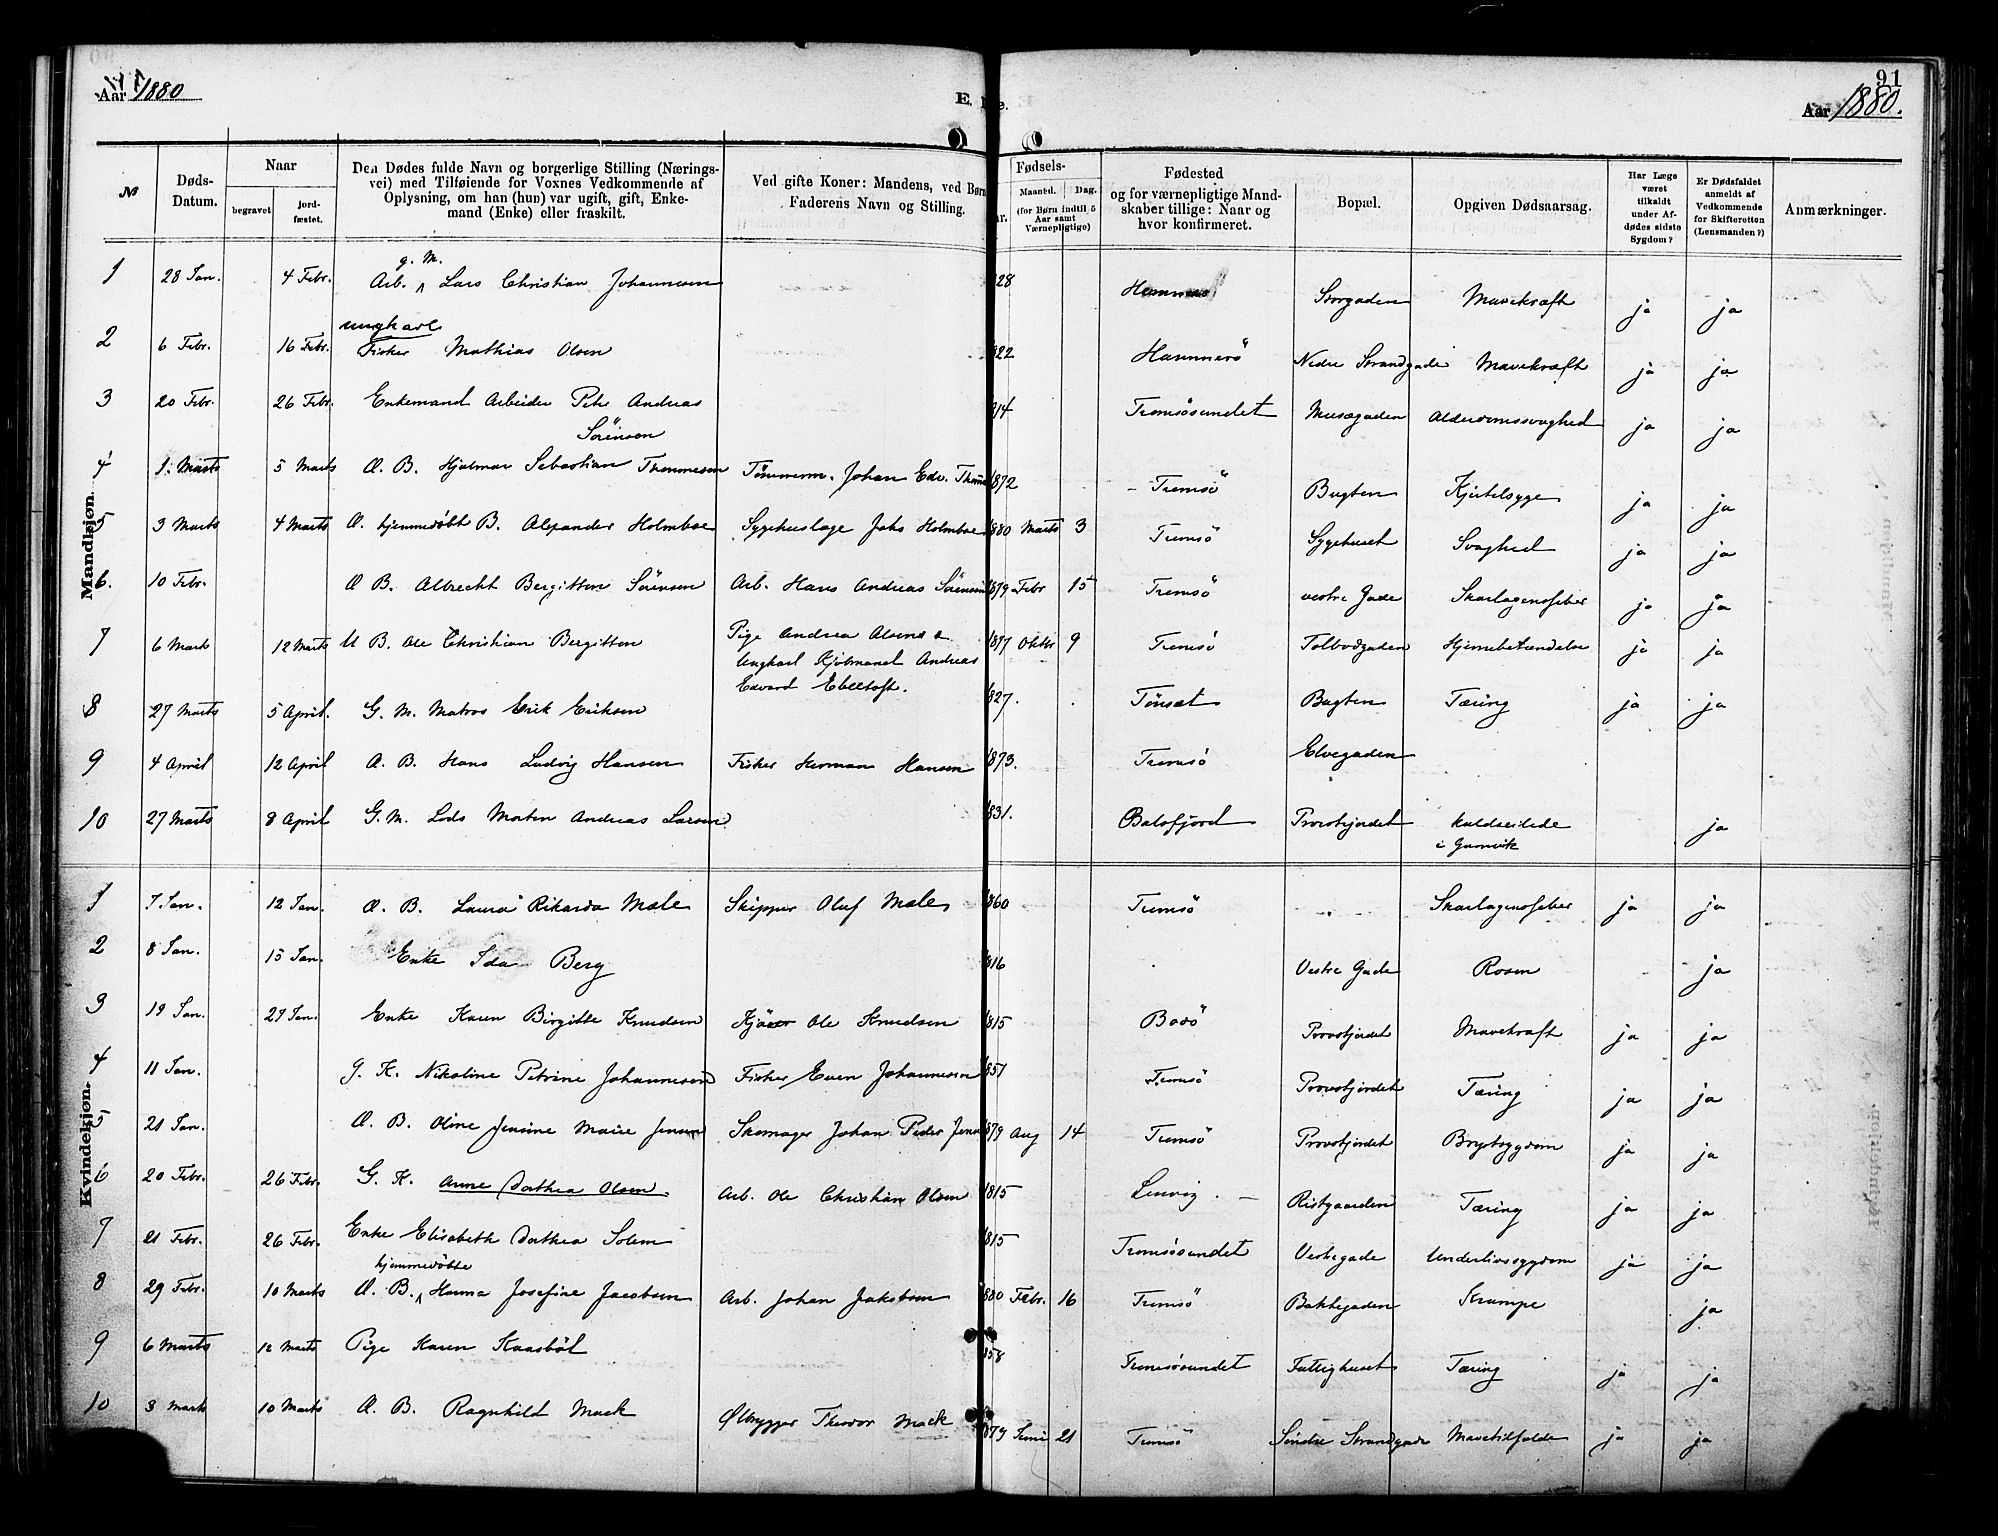 Aar 1880
E.
91
Aar 1880.
№
Døds-Datum.
Naar
begravet
jord-fæstet.
Den Dødes fulde Navn og borgerlige Stilling (Nærings-
vei) med Tilføiende for Voxnes Vedkommende af
Oplysning, om han (hun) var ugift, gift, Enke-
mand (Enke) eller fraskilt.
Ved gifte Koner: Mandens, ved Børn
Faderens Navn og Stilling.
Fødsels-
Maaned. Dag.
(for Børn indtil 5
Aar samt
Værnepligtige)
Fødested
og for værnepligtige Mand-
skaber tillige: Naar og
hvor konfirmeret.
Bopæl.
Opgiven Dødsaarsag.
Har Læge
været
tilkaldt
under Af-
dødes sidste
Sygdom?
Er Dødsfaldet
anmeldt af
Vedkommende
for Skifteretten
(Lensmanden?)
Anmærkninger.
Mandkjøn.
g. M.
1 28 Jan. 4 Febr. Arb. Lars Christian Johannesen 828 Storgaden Mavekræft ja ja
ungkarl
2 6 Febr. 16 Febr. Fisker Mathias Olsen 822 Hammerö Nedre Strandgade Mavekræft ja ja
3 20 Febr. 26 Febr. Enkemand Arbeider Peter Andreas 814 Tromsösundet Musægaden Alderdomssvaghed ja ja
Sörensen
4 1. Marts 5 Marts Æ. B. Hjalmar Sebastian Thommesen Tömmerm. Johan Edv. 1872 Tromsö Bugten Kjirtelsyge ja ja
5 3 Marts 4 Marts Æ. hjemmedöbt B. Alexander Holmboe Sygehuslæge Jaks Holmboe 880 Marts 3 Tromsö Sygehuset Svaghed ja ja
6. 10 Febr. Æ B. Albrecht Bergitton Sörensen Arb. Hans Andreas Sörensen 879 Febr 15 Tromsö vestre Gade Skarlagensfeber ja ja
7 6 Marts 12 Marts U B. Ole Christian Bergitton Pige Andrea Olsen & 1877 Oktbr 9 Tromsö Tolbodgaden Hjernebetændelse ja ja
Ungkarl Kjöbmand Andreas
Edvard Ebeltoft.
8 27 Marts 5 April. G. M. Matros Erik Eriksen 827. Tönset Bugten Tæring ja ja
9 4 April 12 April Æ. B. Hans Ludvig Hansen Fisker Herman Hansen 1873. Tromsö Elvegaden
10 27 Marts 8 April G. M. Lods Morten Andreas Larsen 831. Balsfjord Provstjordet kuldseilede ja
i Gamvik
Kvindekjøn.
1 7 Jan. 12 Jan. Æ. B. Laura Rikarda Mæle Skipper Oluf Mæle 860 Tromsö Skarlagensfeber ja ja
2 8 Jan. 15 Jan. Enke Ida Berg 816 Vestre Gade Rosen ja
3 19 Jan. 29 Jan. Enke Karen Birgitte Knudsen Ole Knudsen 815 Bodö Provstjordet Mavekræft ja ja
4 11 Jan. G. K. Nikoline Petrine Johannesen Fisker Even Johannesen 851 Tromsö Provstjordet Tæring ja ja
5 21 Jan. Æ. B. Oline Jensine Marie Jensen Skomager Johan Peder 879 Aug 14 Tromsö Provstjordet Brystsygdom ja ja
6 20 Febr. 26 Febr. G. K. Anne Dorthea Olsen. Arb. Ole Christian Olsen 1815 Lenvig. Ristgaarden Tæring ja ja
7 21 Febr. 26 Febr. Enke Elisabeth Dorthea Solem 815 Tromsösundet Vestregade Underlivssygdom ja ja
hjemmedöbte
8 29 Febr. 10 Marts Æ. B. Hanna Josefine Jacobsen Arb. Johan Jakobsen 880 Febr. 16 Tromsö Bakkegaden Krampe ja
9 6 Marts 12 Marts Pige Karen Kaasböl 858 Tromsösundet Fattighuset Tæring ja ja
10 3 Marts 10 Marts Æ. B. Ragnhild Mack Ølbrygger Theodor Mack 879 Juni 21 Tromsö Söndre Strandgade Mavetilfælde ja ja